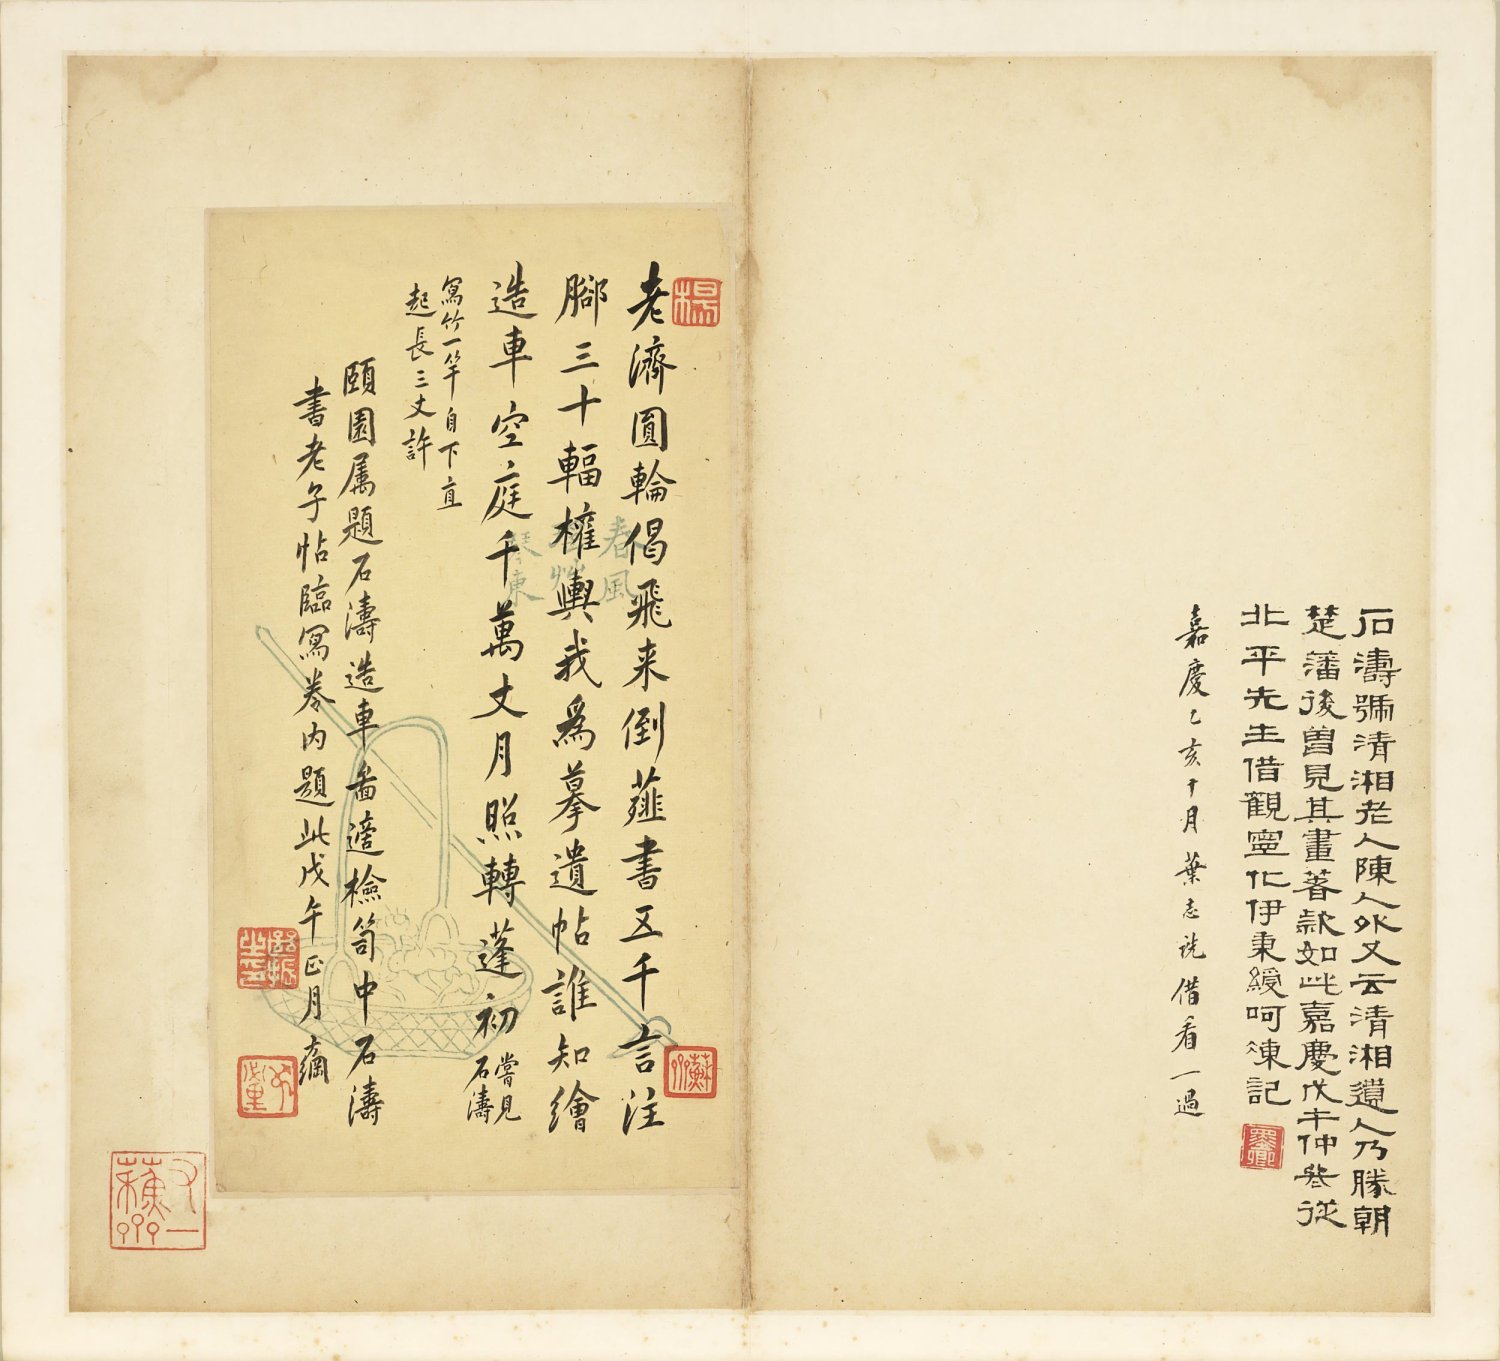 石濤號清湘老人陳人外又云清湘遺人乃勝朝
楚藩後曽見其畫著款如此嘉慶戊午仲冬從
北平先生借觀寧化伊秉綬呵凍記
嘉慶乙亥十月葉志詵借看一過
老濟圓輪偈飛来倒薤書五千言注
腳三十輻權輿我為摹遺帖誰知繪
造車空庭千萬丈月照轉蓬初
嘗見石濤
寫竹一竿自下直
起長三丈許
頤園属題石濤造車圖適檢笥中石濤
書老子帖臨寫卷内題此戊午正月
春風
楊
蘇